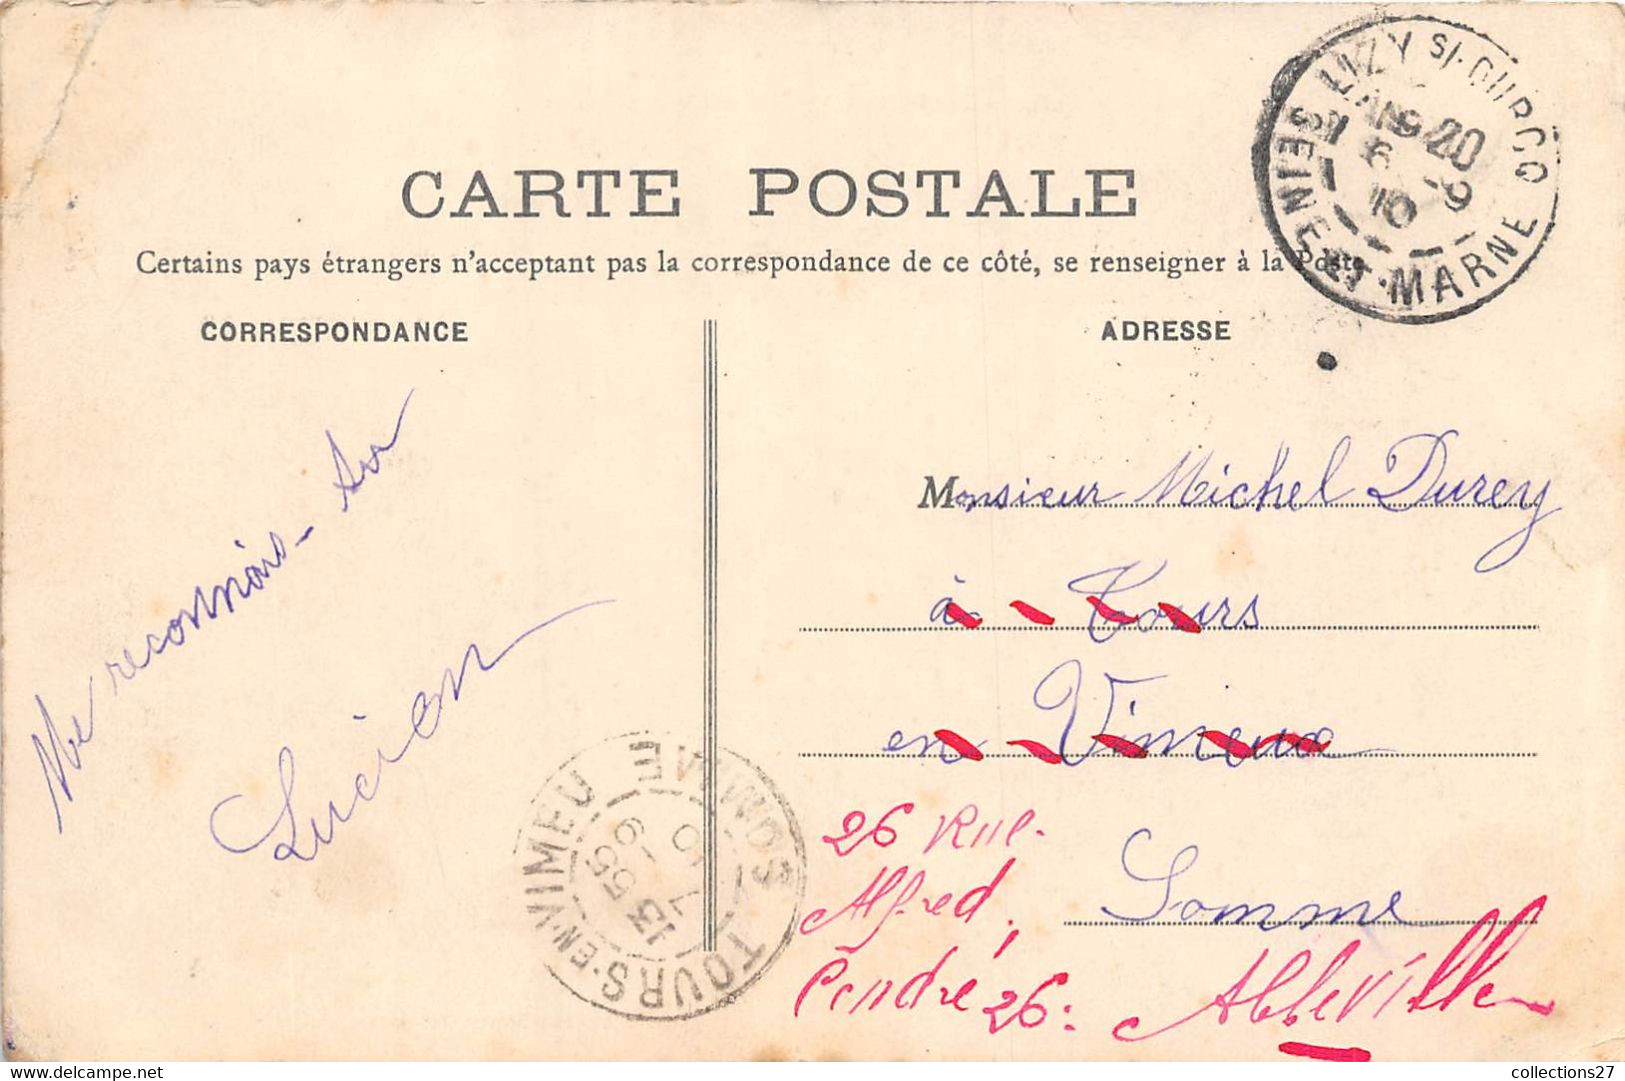 CARTE POSTALE
Certains pays étrangers n'acceptant pas la correspondance de ce côté, se renseigner à la Poste
CORRESPONDANCE
ADRESSE
LIZY S/-OURCQ
SEINE-ET-MARNE
Me reconnais-tu
Lucien
Monsieur Michel Durey
à Tours
en Vimeux
Somme
26 Rue
Alfred
Cendré 26:
Abbeville
TOURS-EN-VIMEU
SOMME
13 55
collections27